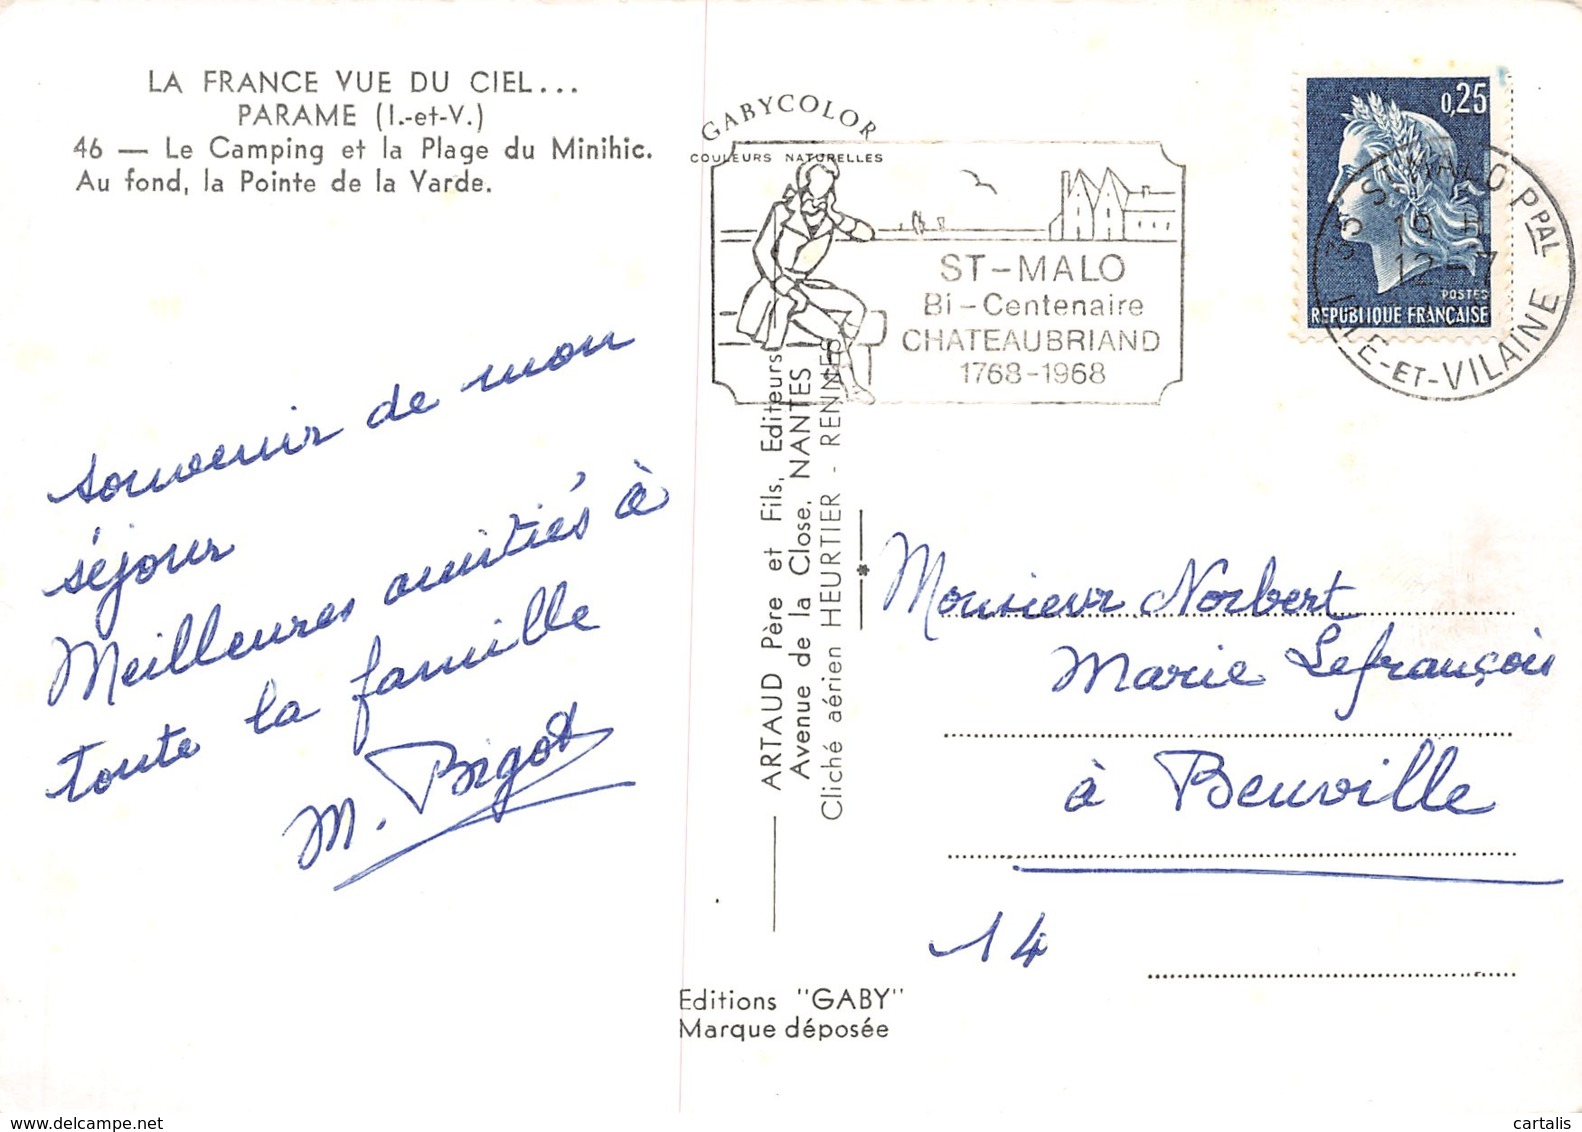 LA FRANCE VUE DU CIEL...
PARAME (I.-et-V.)
46 — Le Camping et la Plage du Minihic.
Au fond, la Pointe de la Varde.
souvenir de mon
séjour
Meilleures amitiés à
toute la famille
M. Bigot
GABYCOLOR
COULEURS NATURELLES
ST-MALO
Bi-Centenaire
CHATEAUBRIAND
1768-1968
0,25
POSTES
REPUBLIQUE FRANÇAISE
35 ST MALO PPAL
19 H
12-7
ILLE-ET-VILAINE
ARTAUD Père et Fils, Editeurs
Avenue de la Close. NANTES
Cliché aérien HEURTIER - RENNES
Monsieur Norbert
Marie Lefrançois
à Beuville
14
Editions "GABY"
Marque déposée
delcampe.net
cartalis